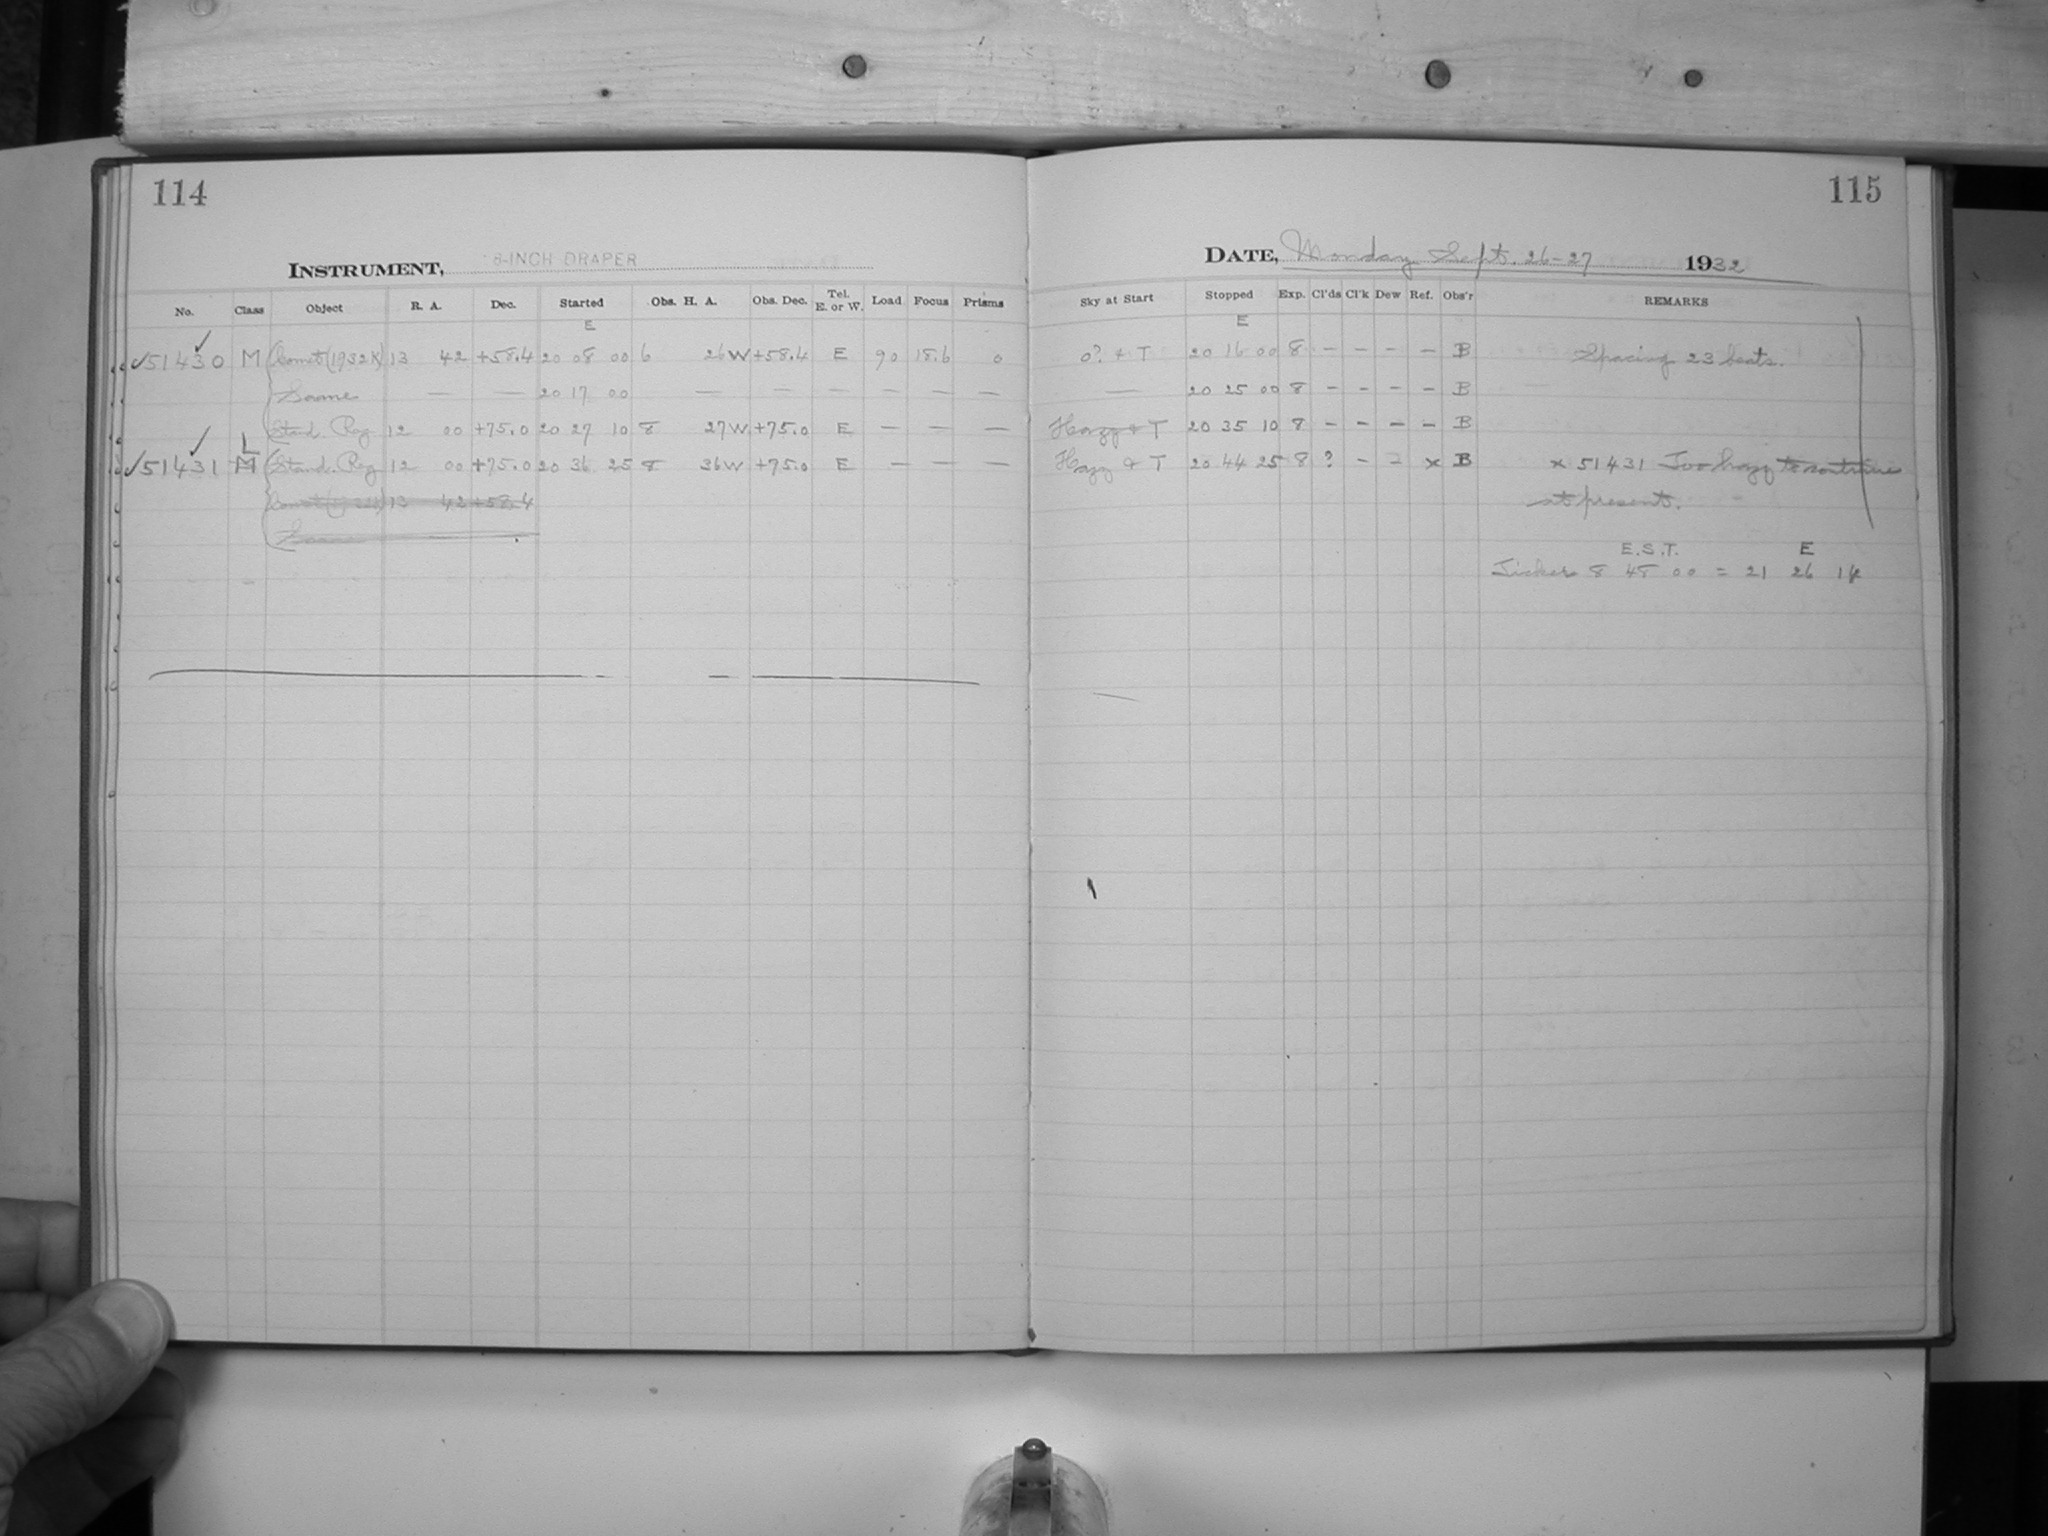 114
INSTRUMENT, 8-INCH DRAPER
No. Class Object R. A. Dec. Started Obs. H. A. Obs. Dec. Tel. E. or W. Load Focus Prisms
E
✓51430 M Comet (1932K) 13 42 +58.4 20 08 00 6 26W +58.4 E 90 18.6 0
Same — — 20 17 00 — — — — — —
Stand. Reg 12 00 +75.0 20 27 10 8 27W +75.0 E — — —
L
✓51431 M Stand. Reg 12 00 +75.0 20 36 25 8 36W +75.0 E — — —
Comet (1932K) 13 42 +58.4
Same
115
DATE, Monday Sept. 26-27 1932
Sky at Start Stopped Exp. Cl'ds Cl'k Dew Ref. Obs'r REMARKS
E
0? & T 20 16 00 8 – – – – B Spacing 23 beats.
— 20 25 00 8 – – – – B
Hazy & T 20 35 10 8 – – – – B
Hazy & T 20 44 25 8 ? – – x B x 51431 Too hazy to continue
at present.
E.S.T. E
8 48 00 = 21 26 14